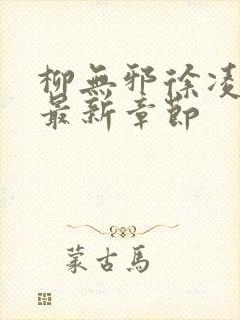 柳無邪徐凌
最新章節
蒙古馬